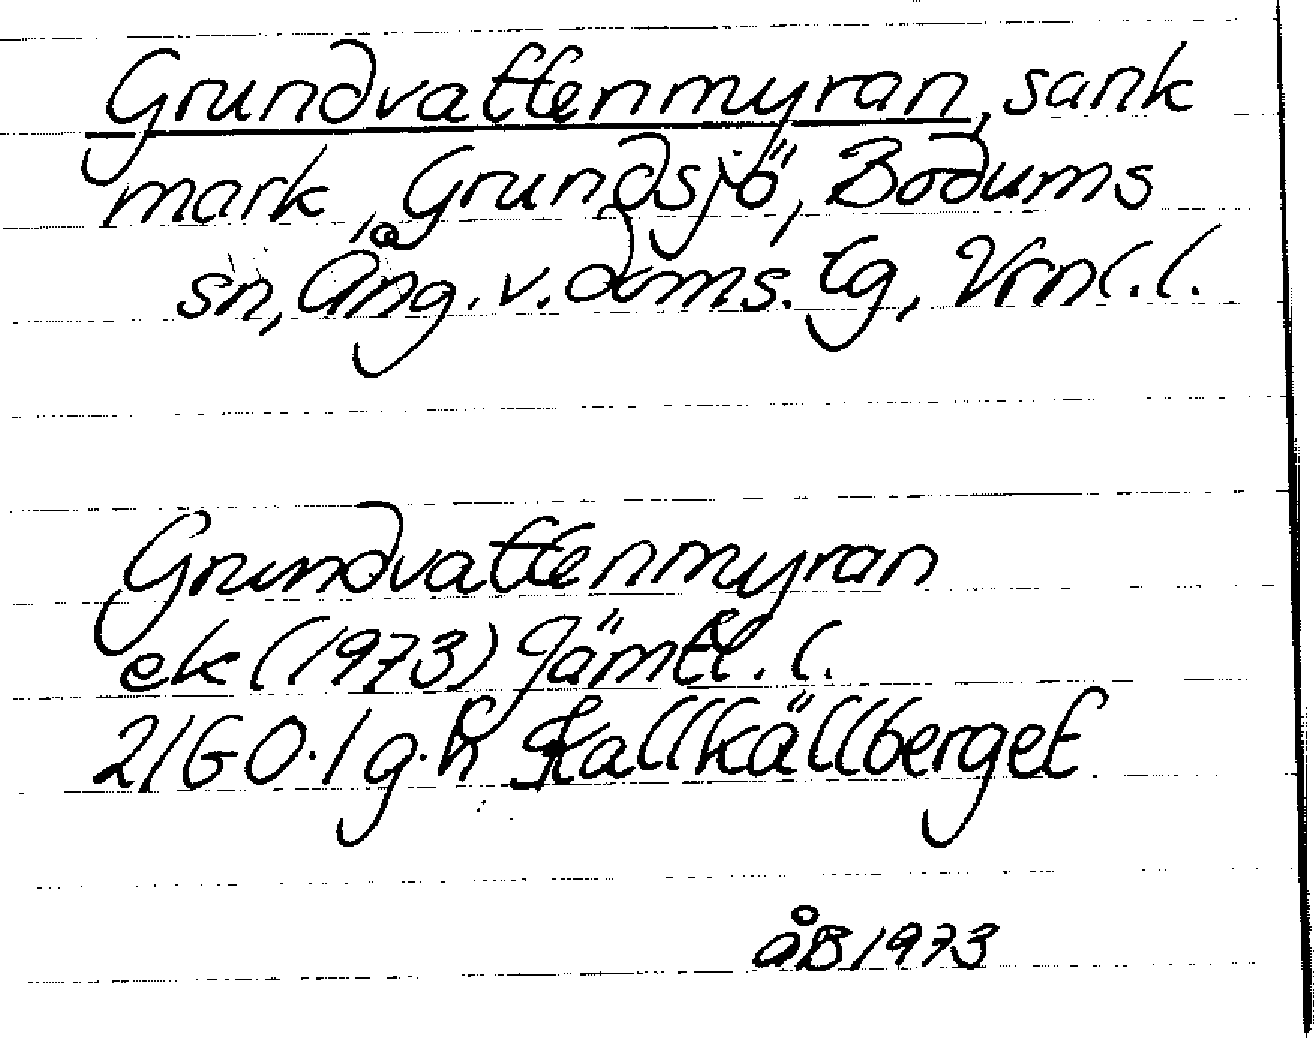 Grundvattenmyran, sank
mark, Grundsjö, Bodums
sn, Ång. v. doms. tg, Vrnl. l.
Grundvattenmyran
ek (1973) Jämtl. l.
21G 0.1 g.h Skallkällberget
åB 1973